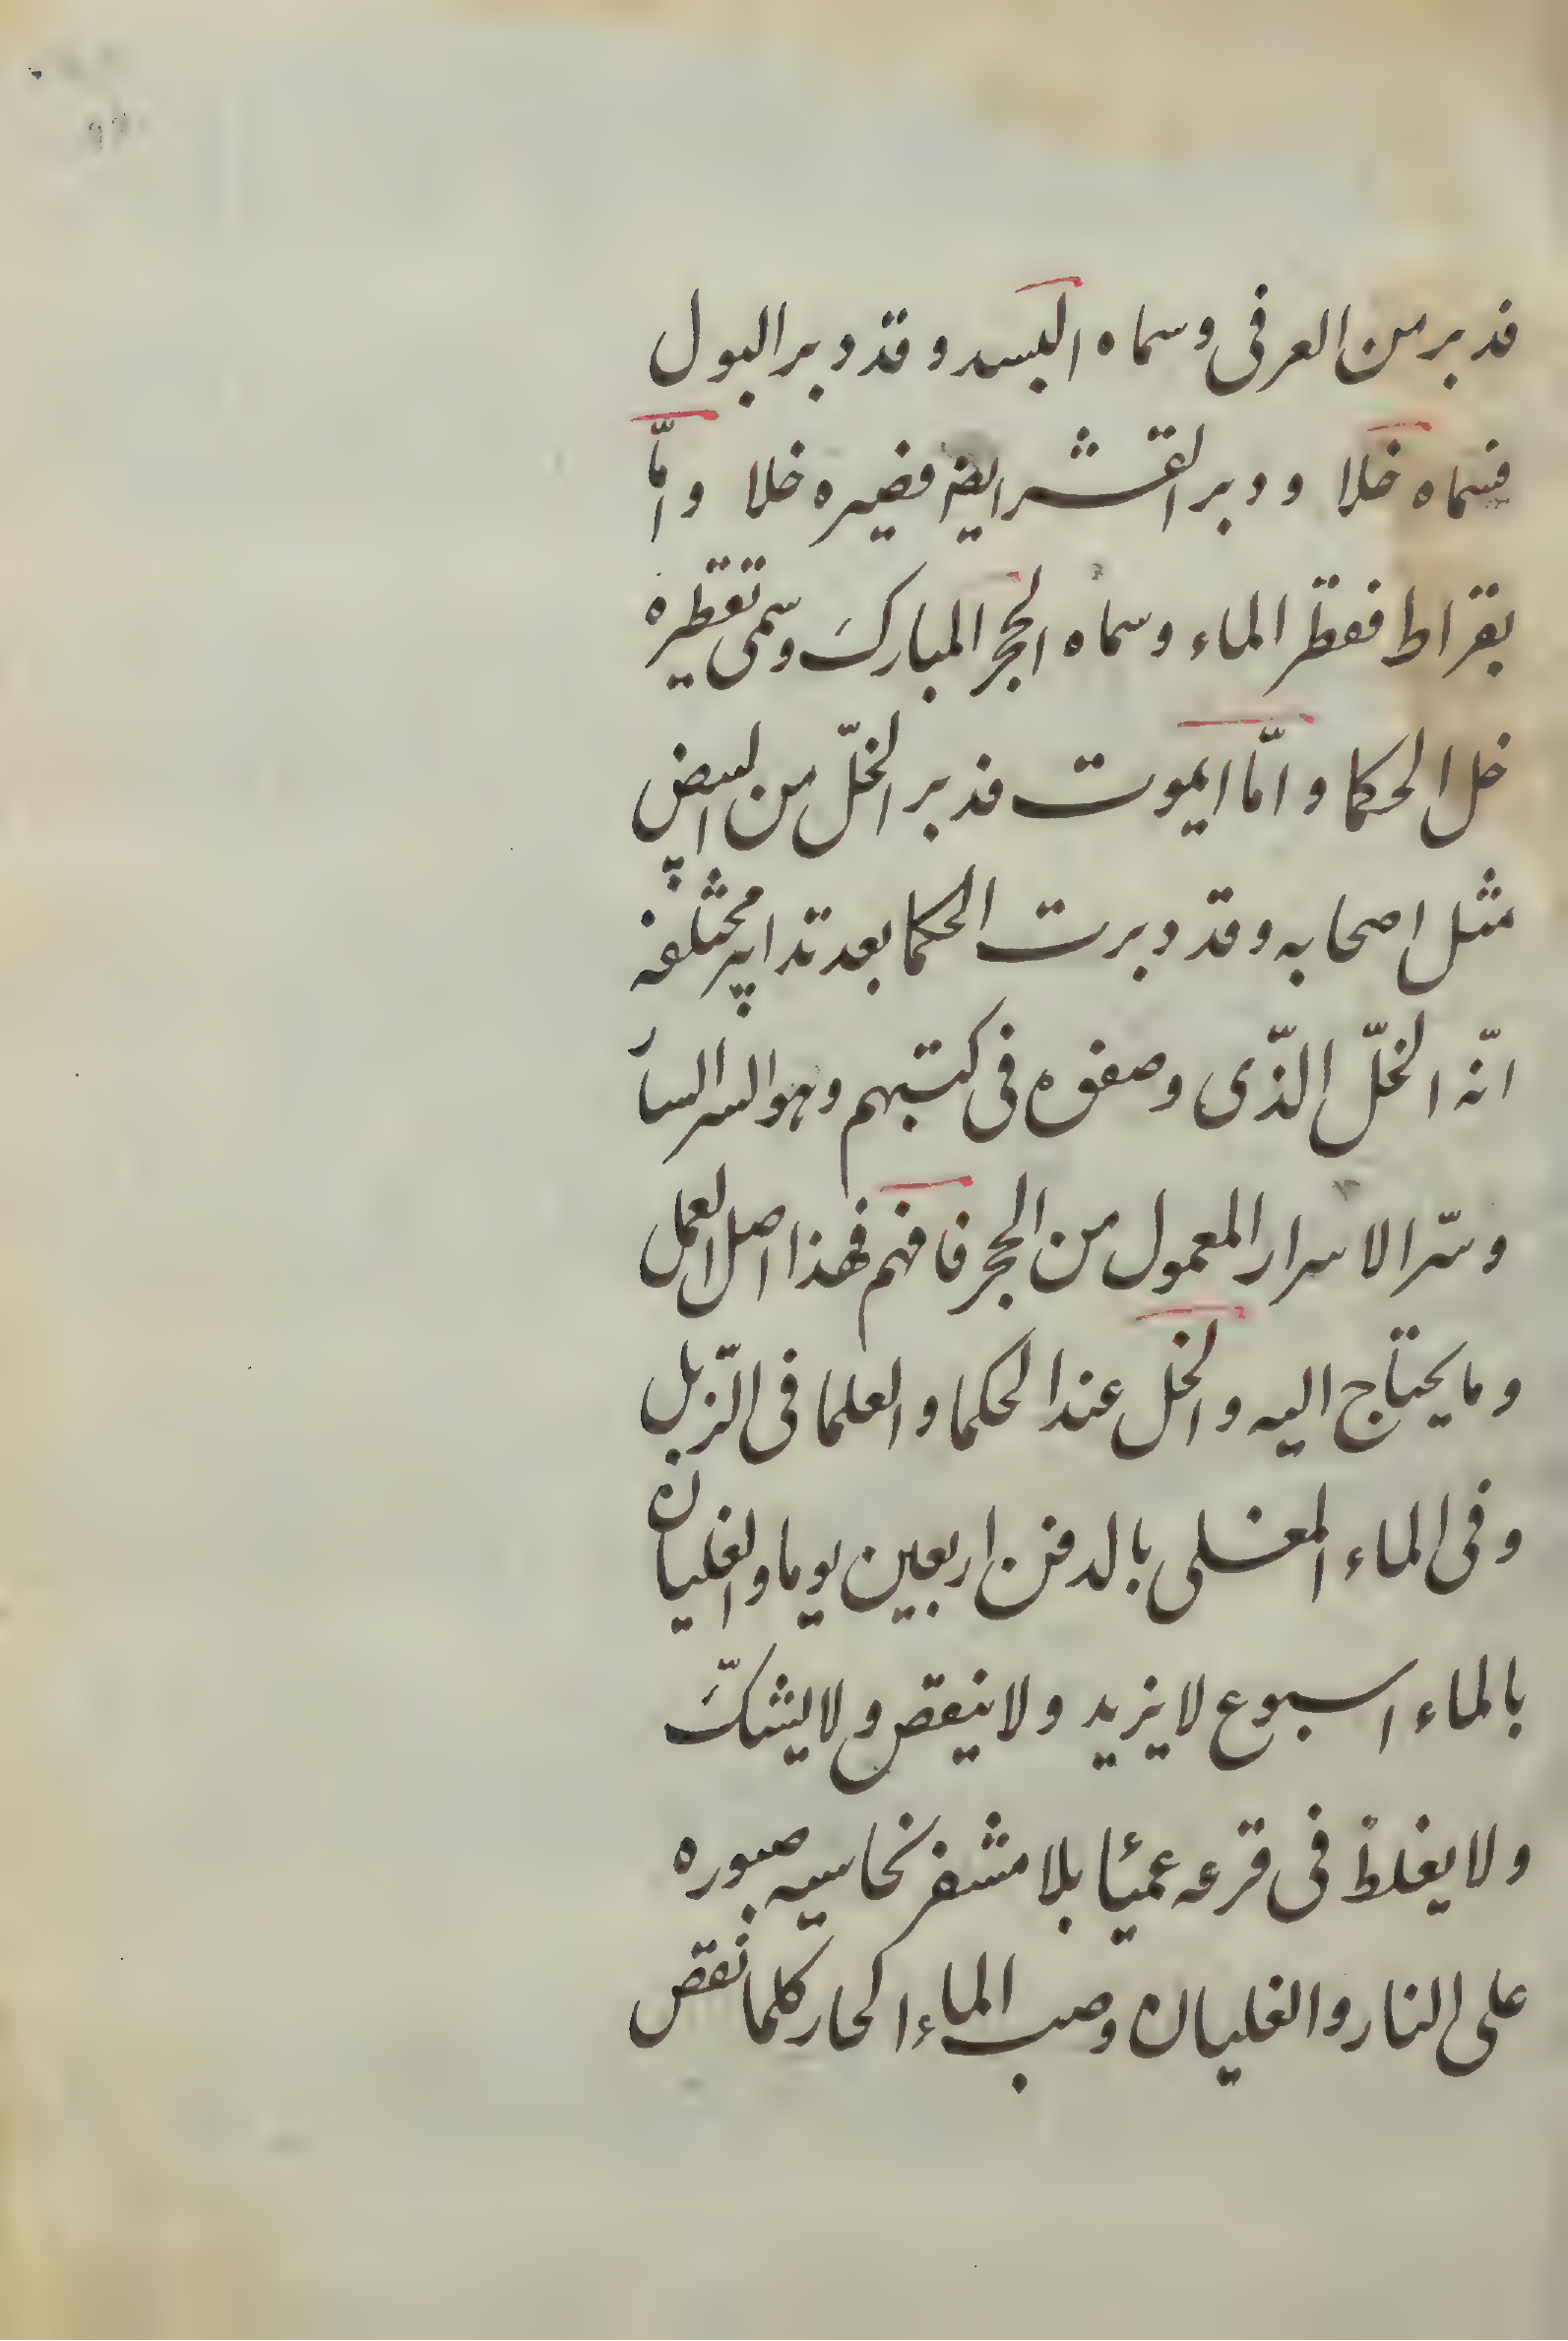 فدبر من العرفى وسماه البسد وقد دبر البول
فسماه خلا ودبر القشر ايضا فصيره خلا وامّا
بقراط فقطر الماء وسماه الحجر المبارك وسمى تقطيره
خل الحكما وامّا ايموت فدبر الخلّ من البيض
مثل اصحابه وقد دبرت الحكما بعد تدابير مختلفه
انّه الخلّ الذّى وصفوه فى كتبهم وهو السر السار
وسّر الاسرار المعمول من الحجر فافهم فهذا اصل العمل
وما يحتاج اليه والخل عند الحكما والعلما فى الزّبل
وفى الماء المغلى بالدفن اربعين يوما والغليان
بالماء اسبوع لا يزيد ولا ينقص ولا يشكّ
ولا يغلط فى قرعه عمئا بلا مشفر نحاسيه صبوره
على النار والغليان وصب الماء الحار كلما نقص